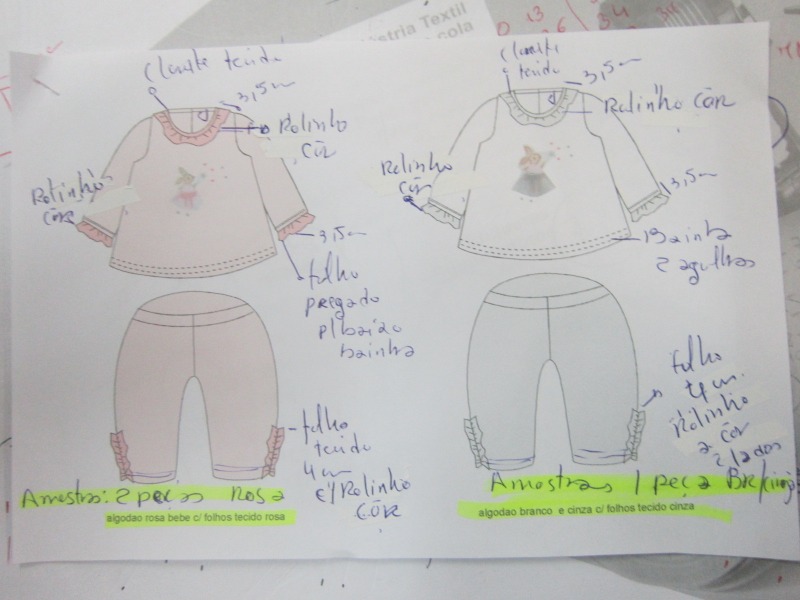 stria Textil
cola
0 13
34
Clarite tecido
3,5cm
Rolinho
côr
Rolinho
côr
3,5cm
folho
pregado
p/baixo
bainha
folho
tecido
4 cm
c/ Rolinho
côr
Amostra: 2 peças Rosa
algodao rosa bebe c/ folhos tecido rosa
tecido
3,5cm
Rolinho côr
Rolinho
côr
13,5cm
Bainha
2 agulhas
folho
4 cm.
Rolinho
a côr
2 lados
Amostras 1 peça BR/cinza
algodao branco e cinza c/ folhos tecido cinza